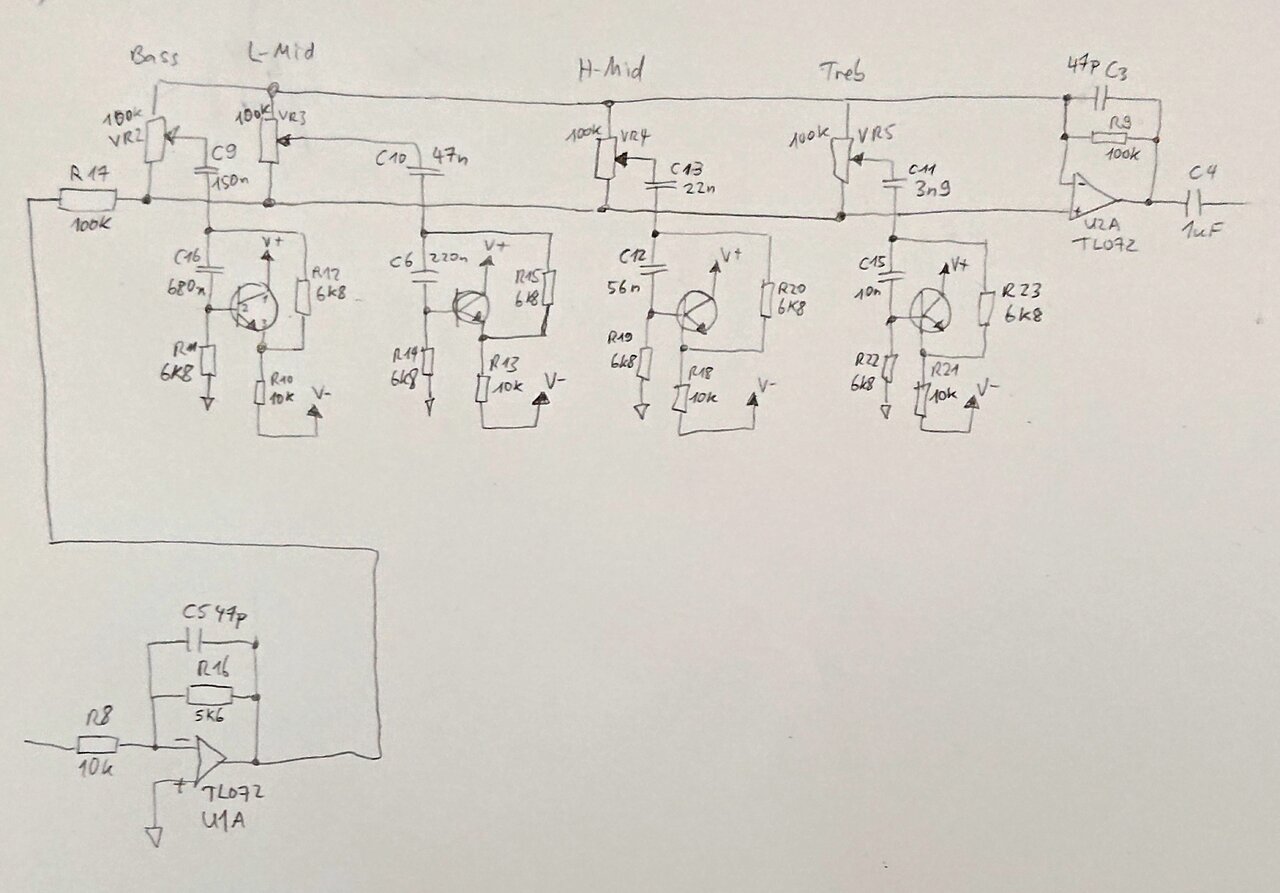 Bass
L-Mid
H-Mid
Treb
47p C3
100k
VR2
100k VR3
100k VR4
100k VR5
R9
100k
C9
150n
C10 47n
C13
22n
C11
3n9
R17
100k
C4
1uF
-
+
U2A
TL072
C16
680n
V+
R12
6k8
1
2
R11
6k8
R10
10k
V-
C6 220n
V+
R15
6k8
R14
6k8
R13
10k
V-
C12
56n
V+
R20
6k8
R19
6k8
R18
10k
V-
C15
10n
V+
R23
6k8
R22
6k8
R21
10k
V-
C5 47p
R16
5k6
R8
10k
-
+
TL072
U1A